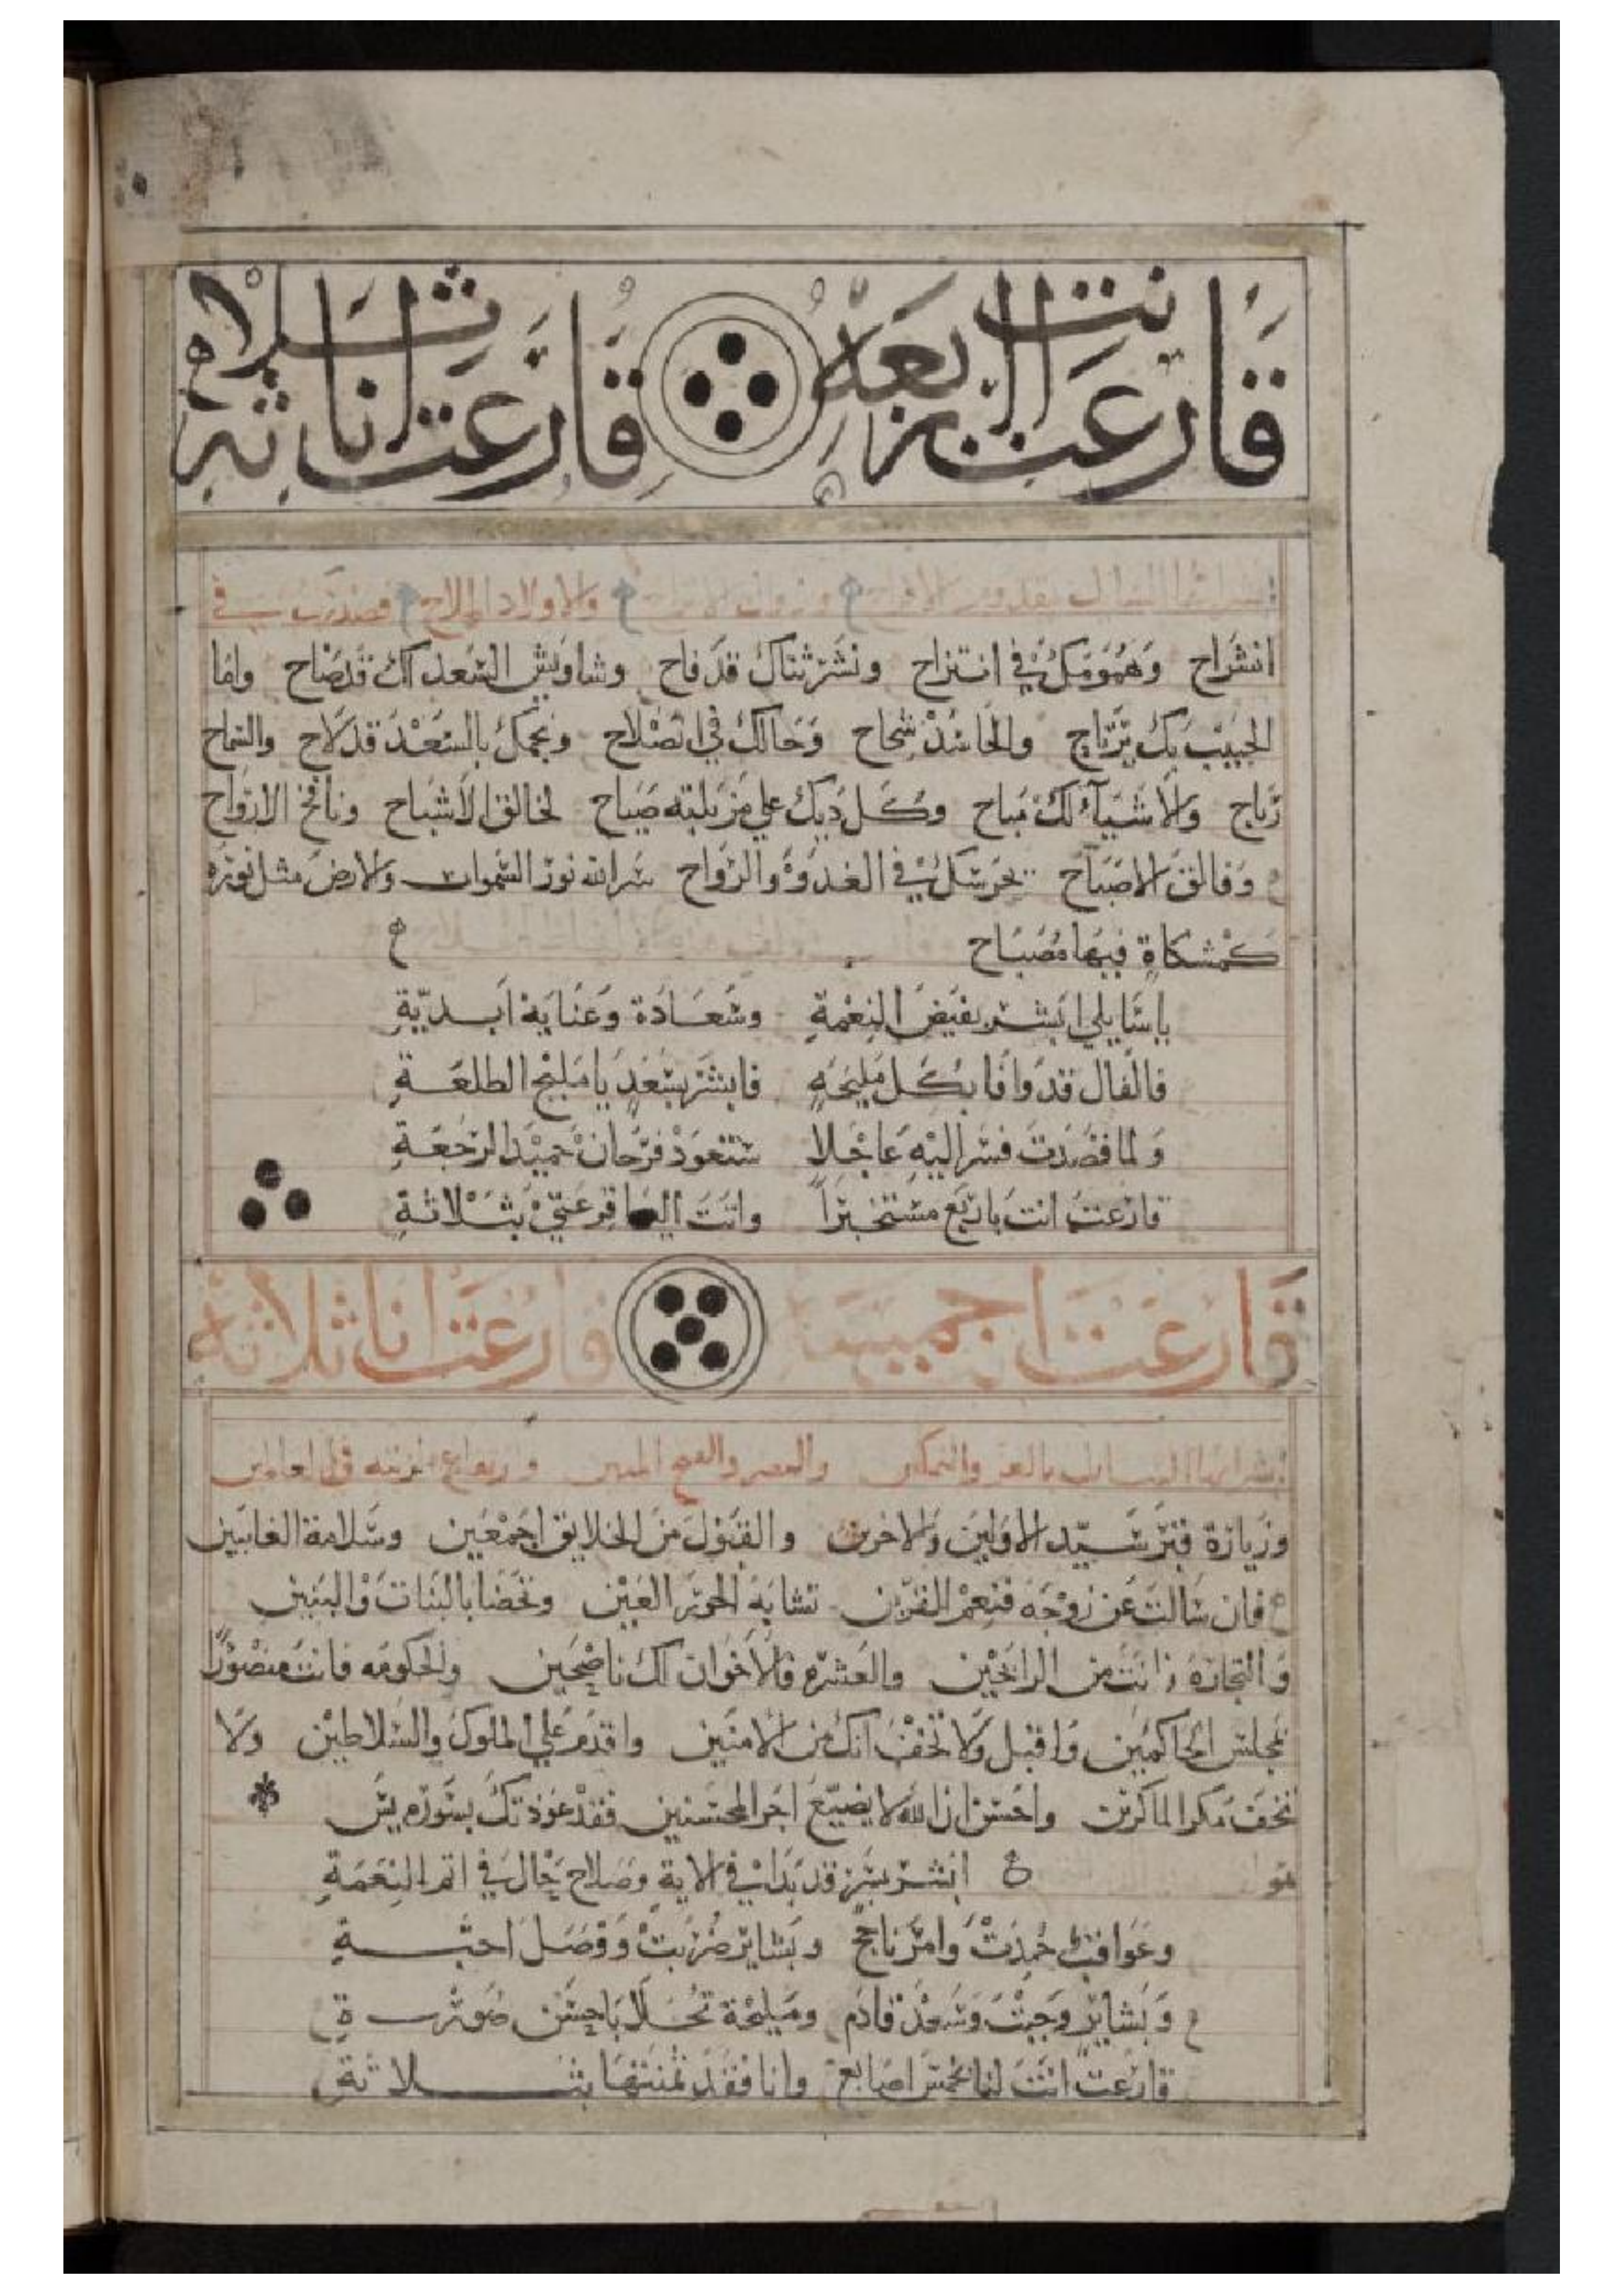 قارعت انت باربعة قارعت انا بثلاثة
والاولاد الملاح فصدرك في
انشراح وهمومك في انتزاح ونشر ثناك قد فاح وشاويش السعد لك قد صاح واما
الحبيب بك يرتاح والحاسد شحاح وحالك في انصلاح ونجمك بالسعد قد لاح والسماح
رباح والاشياء لك مباح وكل ديك على مزبلته صياح لخالق الاشباح ونافخ الارواح
وفالق الاصباح يحرسك في الغدوة والرواح الله نور السموات والارض مثل نوره
كمشكاة فيها مصباح
يا سايلي ابشر بفيض النعمة وسعادة وعناية ابدية
فالفال قد وافا بكل مليحة فابشر بسعد يا مليح الطلعة
ولما قصدت فسر اليه عاجلا ستعود فرحان حميد الرجعة
قارعت انت باربع مستخبرا وانت قرعتي بثلاثة
قارعت قارعت انا ثلاثة
ابشر ايها السايل بالعز والتمكين والنصر والفتح المبين
وزيارة قبر سيد الاولين والاخرين والقبول من الخلايق اجمعين وسلامة الغايبين
فان سالت عن زوجه فنعم القرين تشابه الحور العين وتحضا بالبنات والبنين
والتجاره فانت من الرابحين والعشره فالاخوان لك ناصحين والحكومه فانت منصورا
بمجلس الحاكمين واقبل ولا تخف انك من الامنين واقدم علي الملوك والسلاطين ولا
تخف مكر الماكرين واحسن ان الله لا يضيع اجر المحسنين فقد عوذتك بسوره يس
ابشر بسر قد بدا في الاية وصلاح حال في اتم النعمة
وعواقب حمدت وامر ناجح وبشاير ضربت ووصل احبة
وبشاير وجبت وسعد قادم ومليحة تحلا باحسن صورة
قارعت انت لنا بخمس اصابع وانا فقد بثلاثة